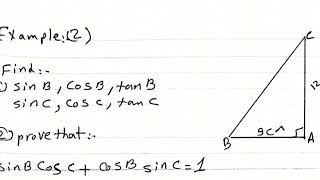 Example:(2)
Find:-
1) sin B, cos B, tan B
sin C, cos C, tan C
2) prove that:-
sin B cos C + cos B sin C = 1
C
12
B
9cm
A